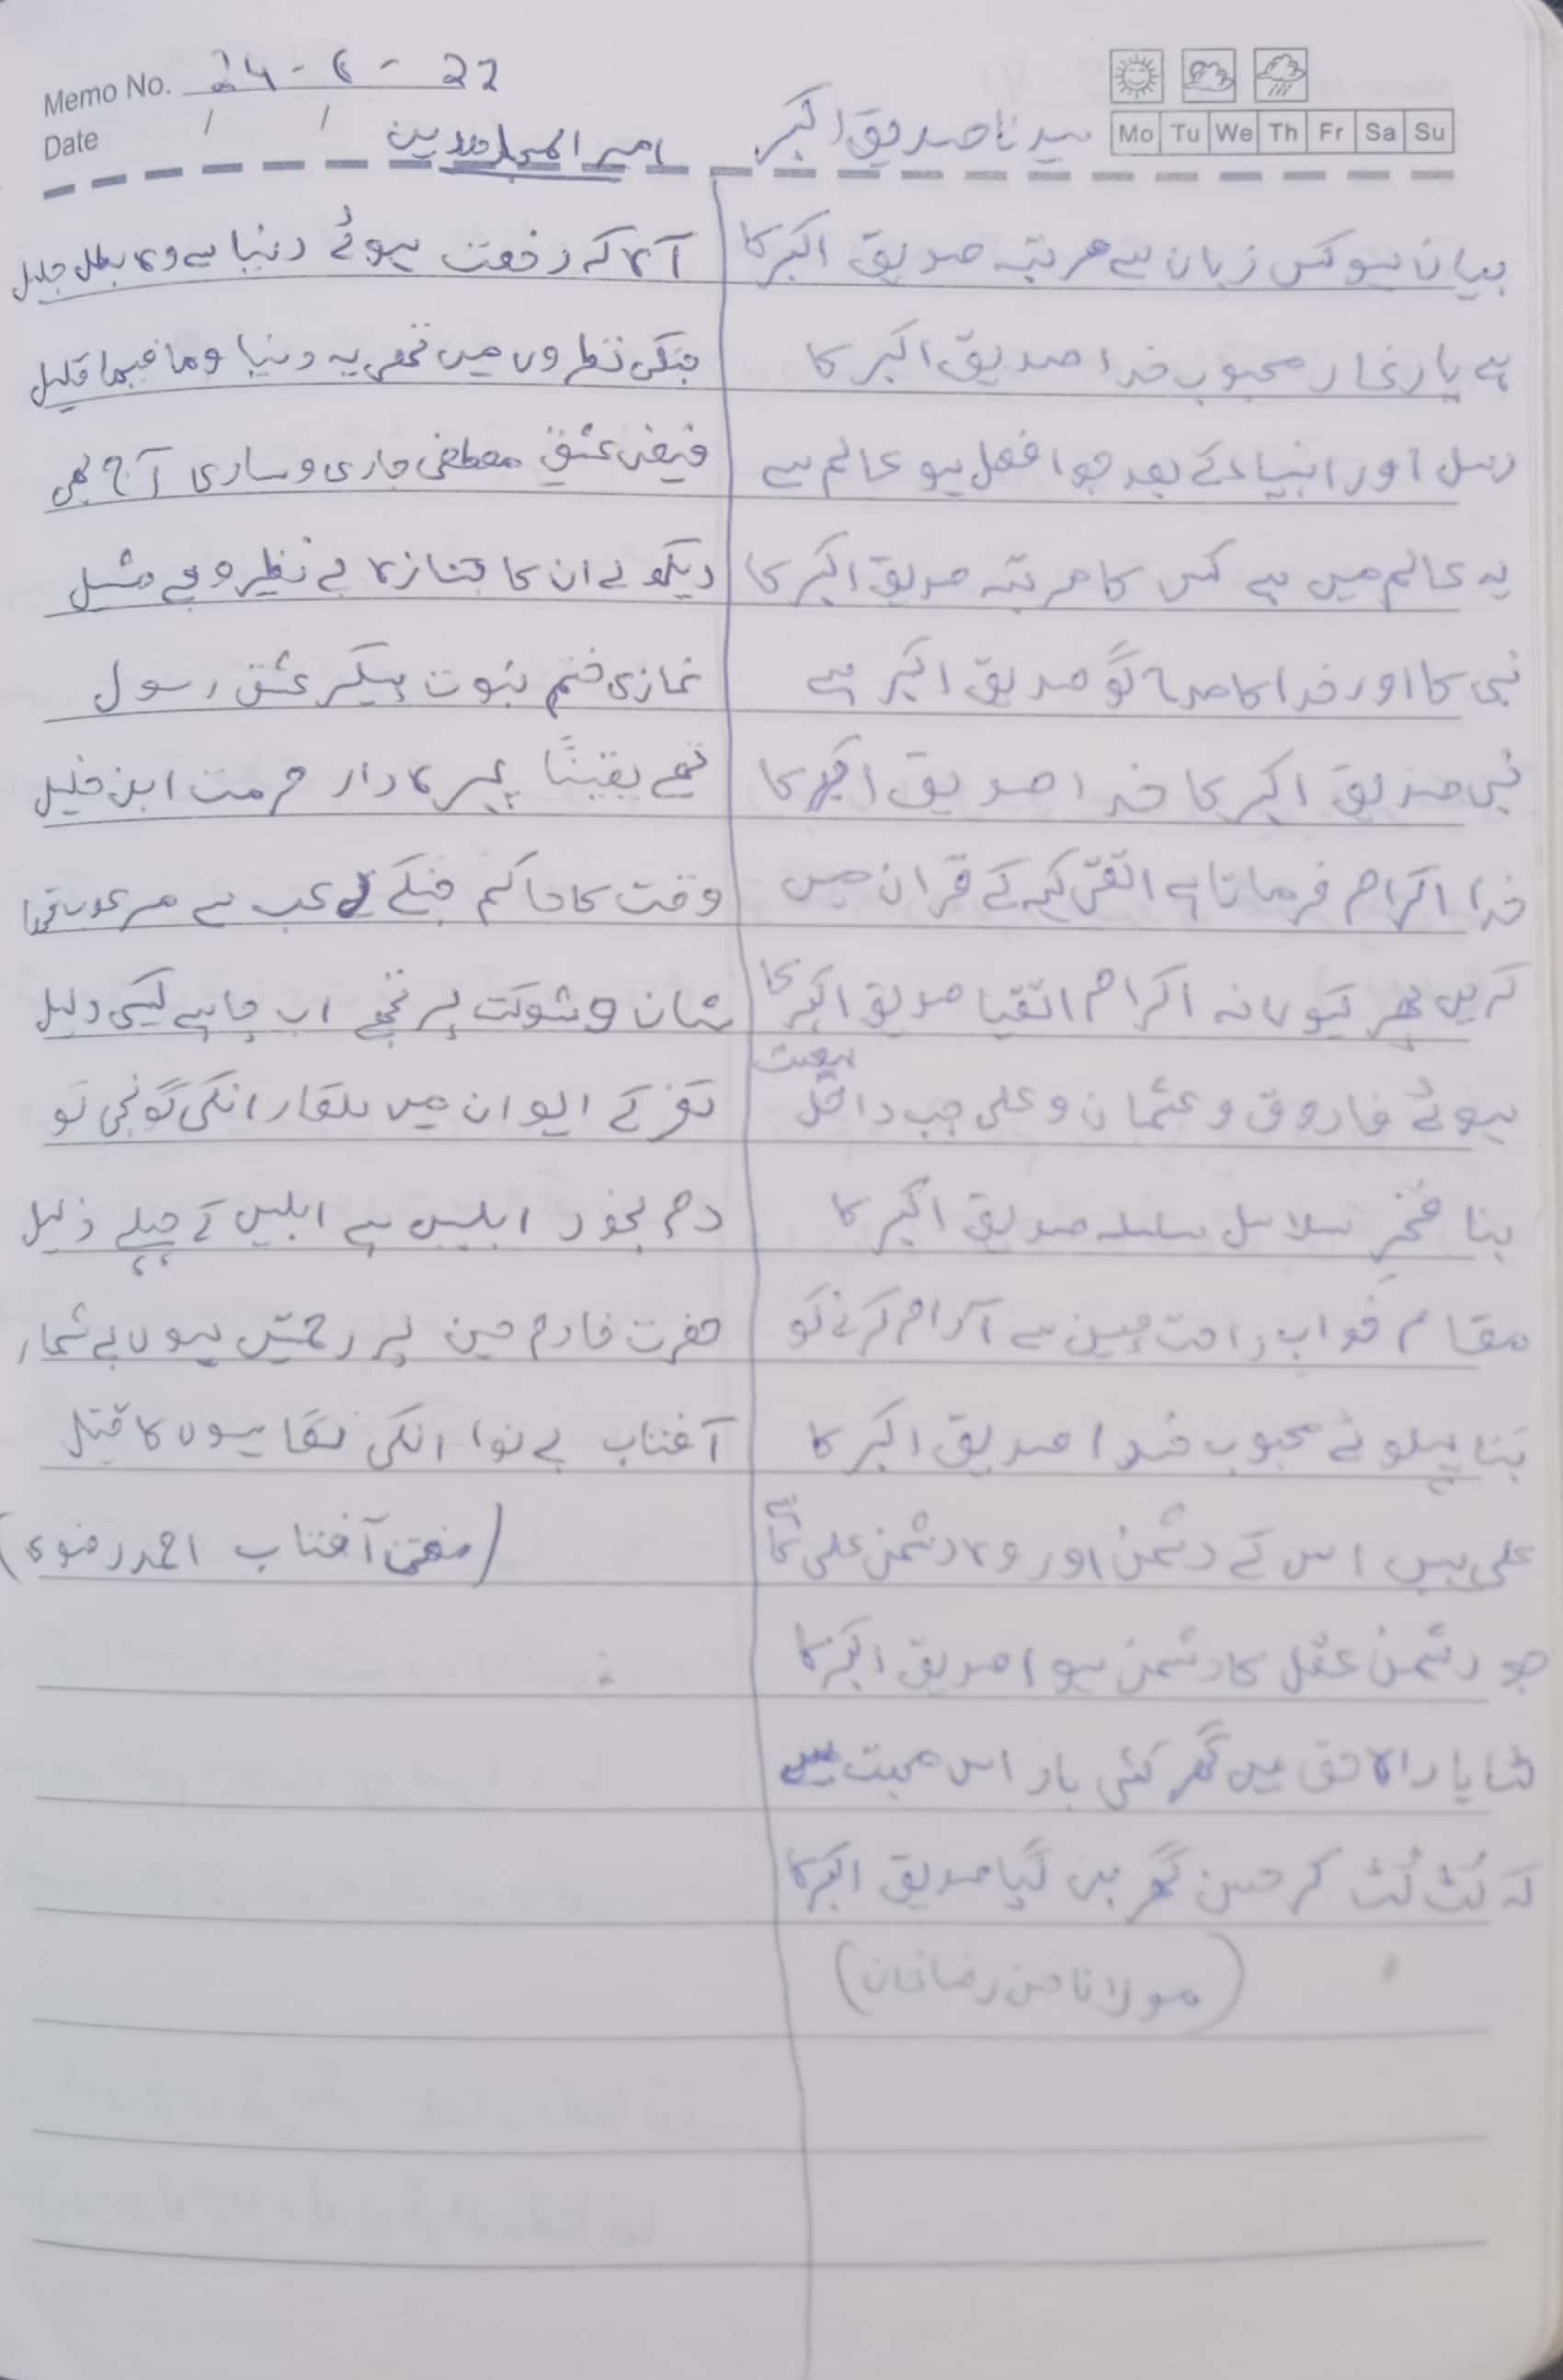 Memo No. 24-6-22
Date / /
Mo Tu We Th Fr Sa Su
سیدنا صدیق اکبر
بیان ہو کس زبان سے مرتبہ صدیق اکبر کا
ہے یار غار محبوب خدا صدیق اکبر کا
رسل اور انبیاء کے بعد جو افضل ہو عالم سے
یہ عالم میں ہے کس کا مرتبہ صدیق اکبر کا
نبی کا اور خدا کا مدح گو صدیق اکبر ہے
نبی صدیق اکبر کا خدا صدیق اکبر کا
خدا اکرام فرماتا ہے اتقیٰ کہہ کے قران میں
کریں پھر کیوں نہ اکرام اتقیا صدیق اکبر کا
ہوئے فاروق و عثمان و علی جب داخل بیعت
بنا فخر سلاسل سلسلہ صدیق اکبر کا
مقام خواب راحت چین سے آرام کرنے کو
بنا پہلوئے محبوب خدا صدیق اکبر کا
علی ہیں اس کے دشمن اور وہ دشمن علی کا ہے
جو دشمن عقل کا دشمن ہوا صدیق اکبر کا
لٹایا راہ حق میں گھر کئی بار اس محبت سے
کہ لُٹ لُٹ کر حسن گھر بن گیا صدیق اکبر کا
(مولانا حسن رضا خان)
امیر المجاہدین
آہ کہ رخصت ہوئے دنیا سے وہ بطل جلیل
جنکی نظروں میں تھی یہ دنیا وما فیہا قلیل
فیض عشق مصطفی جاری و ساری آج بھی
دیکھ لے ان کا جنازہ بے نظیر و بے مثیل
غازی ختم نبوت پیکر عشق رسول
تھے یقینًا پہرہ دار حرمت ابن خلیل
وقت کا حاکم جنکے رعب سے مرعوب تھا
شان و شوکت پر تجھے اب چاہیے کیسی دلیل
کفر کے ایوان میں للقار انکی گونجی تو
دم بخود ابلیس ہے ابلیس کے چیلے ذلیل
حضرت خادم حسین پر رحمتیں ہوں بے شمار
آفتاب بے نوا انکی نگاہوں کا قتیل
(مفتی آفتاب احمد رضوی)